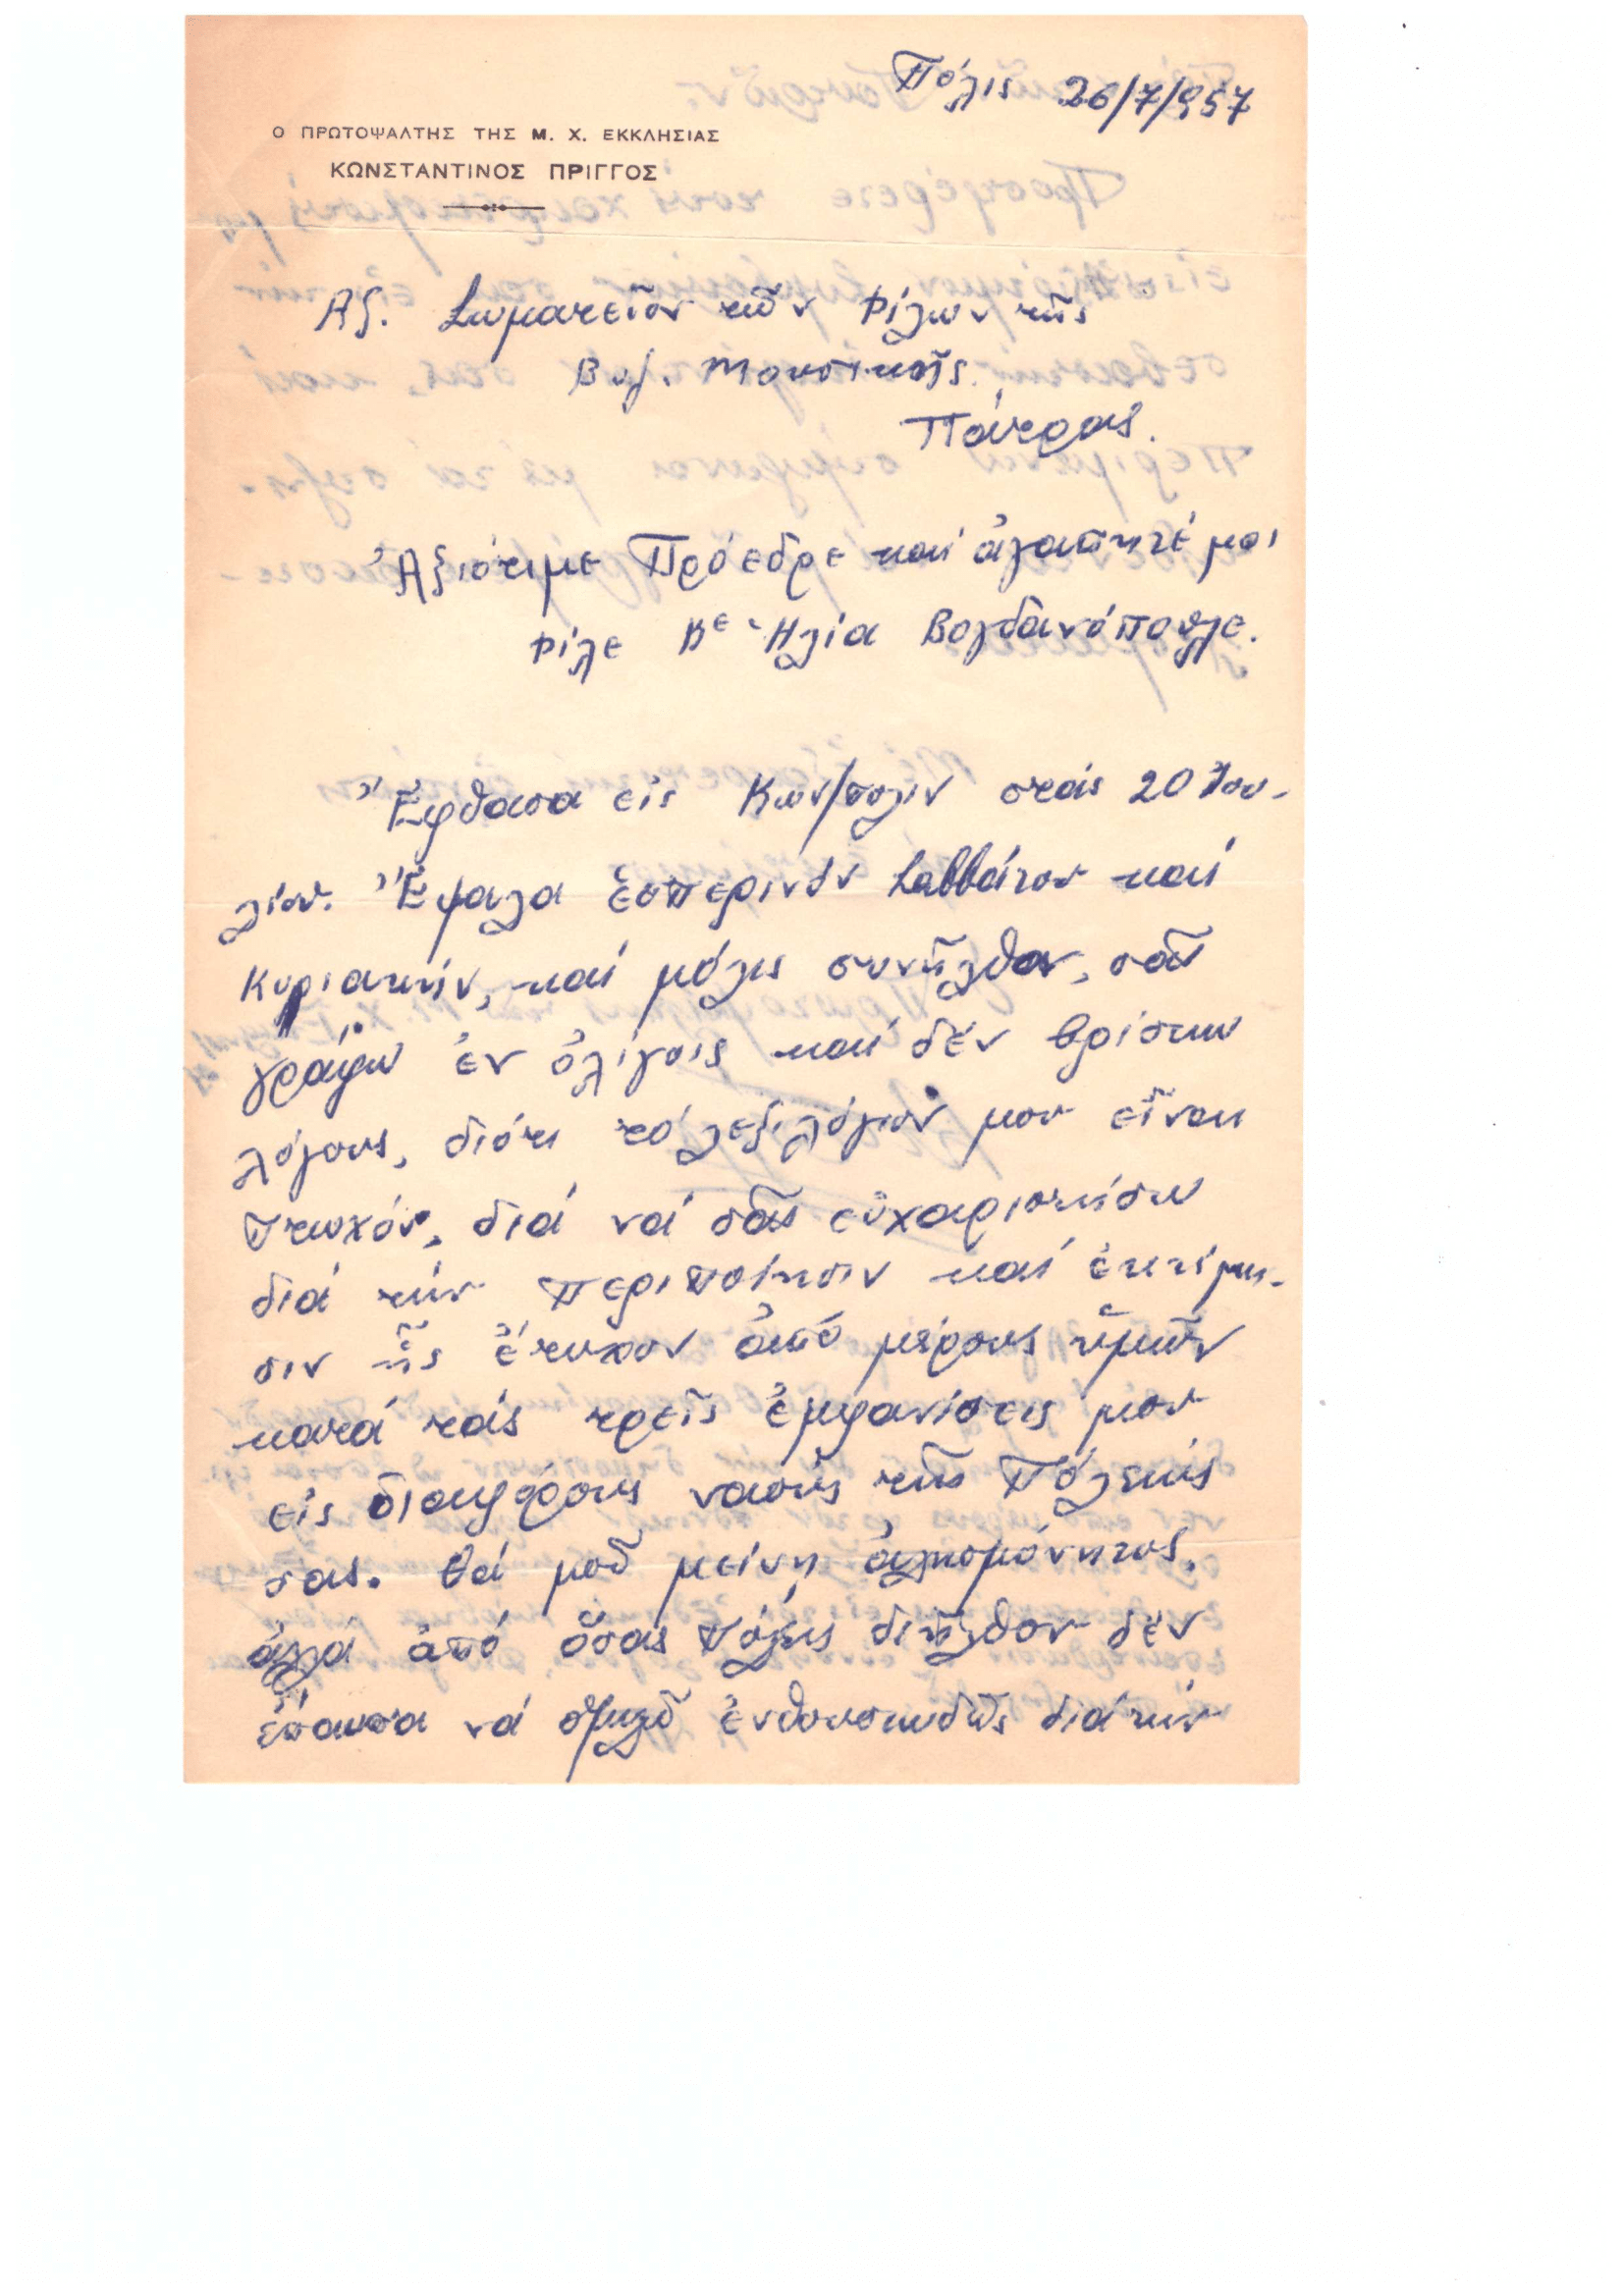 Πόλις 26/7/957
Ο ΠΡΩΤΟΨΑΛΤΗΣ ΤΗΣ Μ. Χ. ΕΚΚΛΗΣΙΑΣ
ΚΩΝΣΤΑΝΤΙΝΟΣ ΠΡΙΓΓΟΣ
Αξ. Σωματεῖον τῶν Φίλων τῆς
Βυζ. Μουσικῆς.
Πάτρας.
Ἀξιότιμε Πρόεδρε καί ἀγαπητέ μοι
Φίλε Κε Ἠλία Βογδανόπουλε.
Ἔφθασα εἰς Κων/πολιν στάς 20 Ἰου-
λίου. Ἔψαλα ἑσπερινόν Σαββάτου καί
Κυριακήν, καί μόλις συνῆλθον, σᾶς
γράφω ἐν ὀλίγοις καί δέν βρίσκω
λόγους, διότι τό λεξιλόγιόν μου εἶναι
πτωχόν, διά νά σᾶς εὐχαριστήσω
διά τήν περιποίησιν καί ἐκτίμη-
σιν ἧς ἔτυχον ἀπό μέρους ὑμῶν
κατά τάς τρεῖς ἐμφανίσεις μου
εἰς διαφόρους ναούς τῆς Πόλεώς
σας. Θά μοῦ μείνη ἀλησμόνητος.
ἀλλά ἀπό ὅσας πόλεις διῆλθον δέν
ἔπαυσα νά ὁμιλῶ ἐνθουσιωδῶς διά τήν